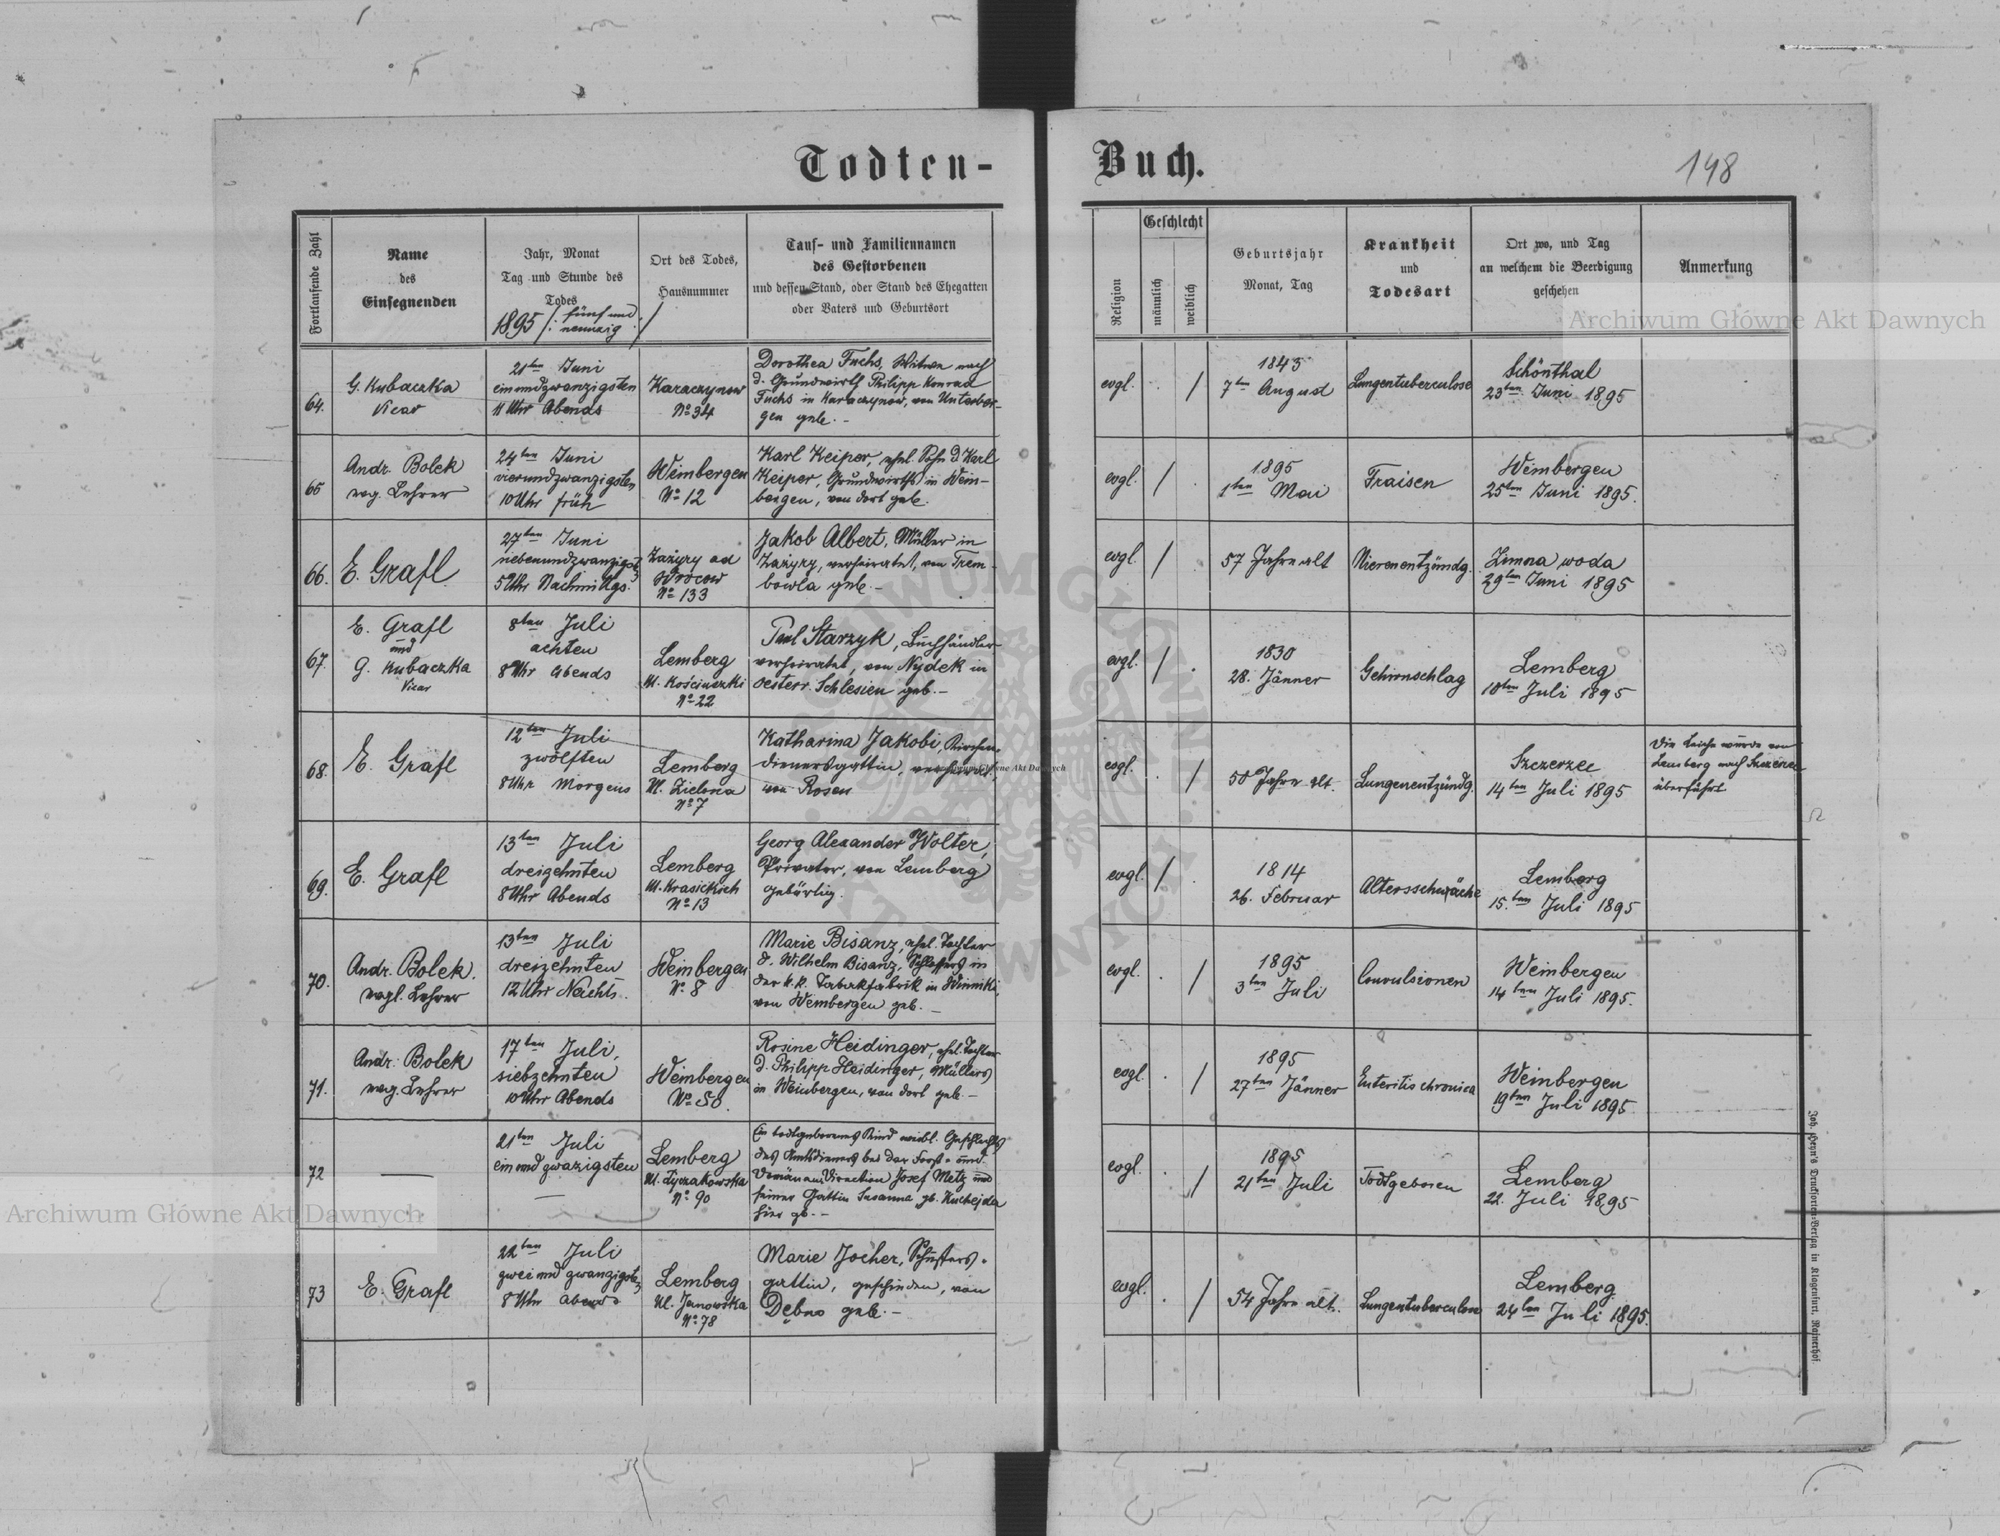 Todten-Buch.
148
Fortlaufende Zahl
Name
des
Einsegnenden
Jahr, Monat
Tag und Stunde des
Todes
1895 /: fünf und
neunzig :/
Ort des Todes,
Hausnummer
Tauf- und Familiennamen
des Gestorbenen
und dessen Stand, oder Stand des Ehegatten
oder Vaters und Geburtsort
Religion
Geschlecht
männlich
weiblich
Geburtsjahr
Monat, Tag
Krankheit
und
Todesart
Ort wo, und Tag
an welchem die Beerdigung
geschehen
Anmerkung
64.
G. Kubaczka
Vicar
21ten Juni
einundzwanzigsten
11 Uhr Abends
Karaczynow
No 34
Dorothea Fuchs, Witwe nach
d. Grundwirth Philipp Konrad
Fuchs in Karaczynow, von Unterber-
gen geb. -
evgl. . /
1843
7ten August
Lungentuberculose
Schönthal
23ten Juni 1895
65
Andr. Bolek
evg. Lehrer
24ten Juni
vierundzwanzigsten
10 Uhr früh
Weinbergen
No 12
Karl Keiper, ehel. Sohn d. Karl
Keiper, Grundwirths in Wein-
bergen, von dort geb.
evgl. / .
1895
1ten Mai
Fraisen
Weinbergen
25ten Juni 1895.
66.
E. Grafl
27ten Juni
siebenundzwanzigst.
5 Uhr Nachmittgs.
Zażyry ad
Wrocow
No 133
Jakob Albert, Müller in
Zażyry, verheiratet, von Trem-
bowla geb. -
evgl. /
57 Jahre alt
Nierenentzündg.
Zimna woda
29ten Juni 1895
67.
E. Grafl
und
G. Kubaczka
Vicar
8ten Juli
achten
8 Uhr Abends
Lemberg
Ul. Kościuszki
No 22
Paul Starzyk, Buchhändler
verheiratet, von Nydek in
oesterr. Schlesien geb. -
evgl. / .
1830
28. Jänner
Gehirnschlag
Lemberg
10ten Juli 1895
68.
E. Grafl
12ten Juli
zwölften
8 Uhr Morgens
Lemberg
Ul. Zielona
No 7
Katharina Jakobi, Kirchen-
dienersgattin, verheirat.
von Rosen
evgl. . /
50 Jahre alt.
Lungenentzündg.
Szczerzec
14ten Juli 1895
Die Leiche wurde von
Lemberg nach Szczerzec
überführt
69.
E. Grafl
13ten Juli
dreizehnten
8 Uhr Abends
Lemberg
Ul. Krasickich
No 13
Georg Alexander Wolter,
Privater, von Lemberg
gebürtig.
evgl. / .
1814
26. Februar
Altersschwäche
Lemberg
15.ten Juli 1895
70.
Andr. Bolek.
evgl. Lehrer
13ten Juli
dreizehnten
12 Uhr Nachts.
Weinbergen
No 8
Marie Bisanz, ehel. Tochter
d. Wilhelm Bisanz, Schlossers in
der k.k. Tabakfabrik in Winniki,
von Weinbergen geb. -
evgl. . /
1895
3ten Juli
Convulsionen
Weinbergen
14ten Juli 1895.
71.
Andr. Bolek
evg. Lehrer
17ten Juli,
siebzehnten
10 Uhr Abends
Weinbergen
No 50.
Rosine Heidinger, ehel. Tochter
d. Philipp Heidinger, Müllers
in Weinbergen, von dort geb. -
evgl. . /
1895
27ten Jänner
Enteritis chronica
Weinbergen
19ten Juli 1895
72
—
21ten Juli
ein und zwazigsten
—
Lemberg
Ul. Łyczakowska
No 90
Ein todtgeborenes Kind weibl. Geschlechts
des Amtsdieners bei der Forst- und
Domänen Direction Josef Metz und
seiner Gattin Susanna gb. Kuchejda
hier gb. -
evgl. . /
1895
21ten Juli
Todtgeboren
Lemberg
22. Juli 1895
73
E. Grafl
22ten Juli
zwei und zwanzigsten
8 Uhr abends
Lemberg
Ul. Janowska
No 78
Marie Jocher, Schusters-
gattin, geschieden, von
Dębno geb. -
evgl. . /
54 Jahre alt.
Lungentuberculose
Lemberg
24ten Juli 1895.
Joh. Heyn's Drucksorten-Verlag in Klagenfurt, Rainerhof.
Archiwum Główne Akt Dawnych
Archiwum Główne Akt Dawnych
Archiwum Główne Akt Dawnych